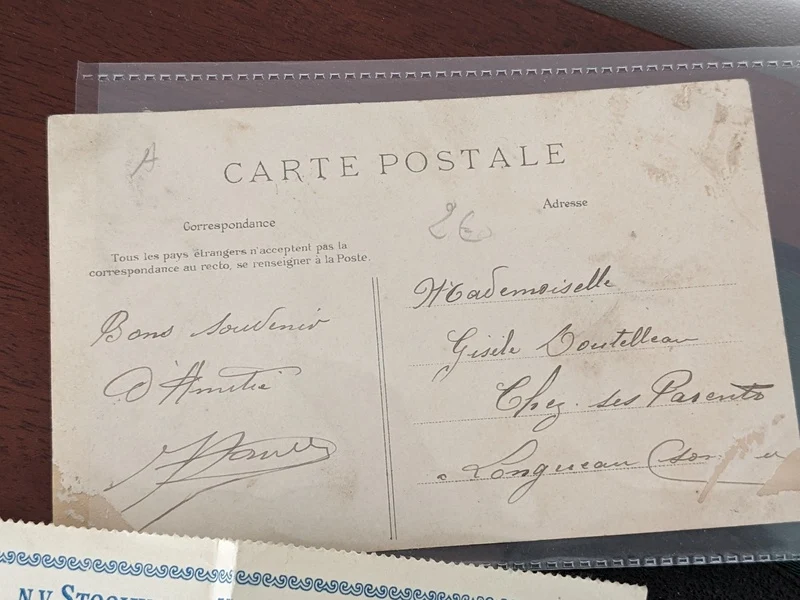 A
CARTE POSTALE
Correspondance
Tous les pays étrangers n'acceptent pas la
correspondance au recto, se renseigner à la Poste.
Adresse
2€
Bons souvenir
D'Amitié
Mademoiselle
Gisèle
Chez ses Parents
à Longueau (som
N.V.